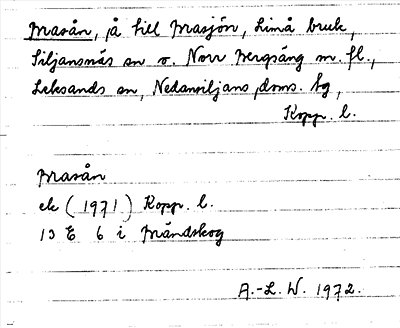 Prasån, å till Prasjön, Limå bruk,
Siljansnäs sn o. Norr Bergsäng m. fl.,
Leksands sn, Nedansiljans doms. hg,
Kopp. l.
Prasån
ek (1971) Kopp. l.
13 E 6 i Brändskog
A.-L. W. 1972.